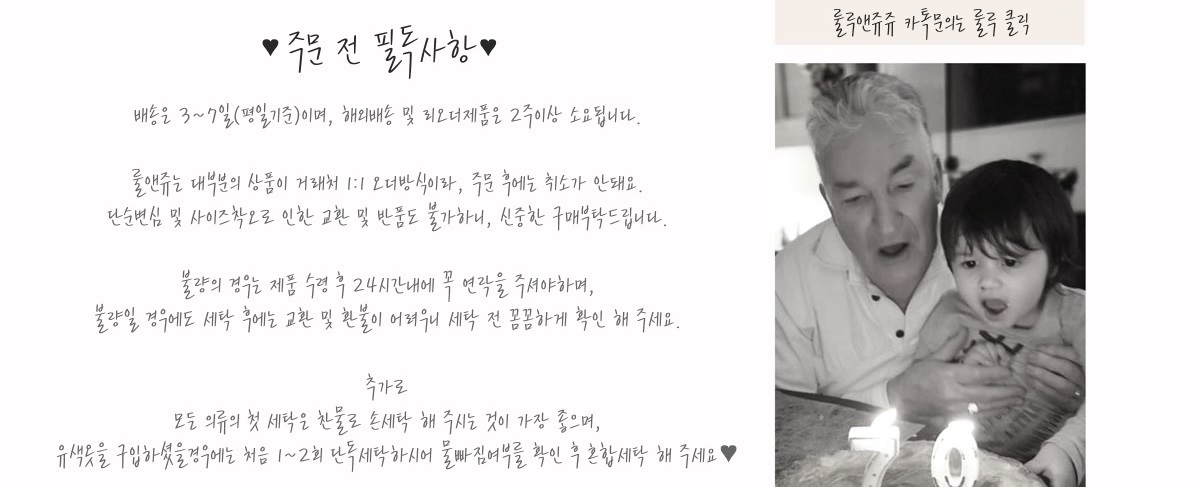 ♥주문 전 필독사항♥
배송은 3~7일(평일기준)이며, 해외배송 및 리오더제품은 2주이상 소요됩니다.
룰앤쥬는 대부분의 상품이 거래처 1:1 오더방식이라, 주문 후에는 취소가 안돼요.
단순변심 및 사이즈착오로 인한 교환 및 반품도 불가하니, 신중한 구매부탁드립니다.
불량의 경우는 제품 수령 후 24시간내에 꼭 연락을 주셔야하며,
불량일 경우에도 세탁 후에는 교환 및 환불이 어려우니 세탁 전 꼼꼼하게 확인 해 주세요.
추가로
모든 의류의 첫 세탁은 찬물로 손세탁 해 주시는 것이 가장 좋으며,
유색옷을 구입하셨을경우에는 처음 1~2회 단독세탁하시어 물빠짐여부를 확인 후 혼합세탁 해 주세요♥
룰루앤쥬쥬 카톡문의는 룰루 클릭
70